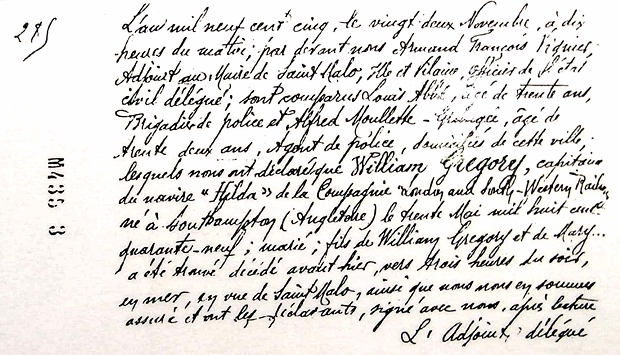 275
L'an mil neuf cent cinq, le vingt deux Novembre, à dix
heures du matin; par devant nous Armand François Vignes,
Adjoint au Maire de Saint Malo, Ille et Vilaine, officier de l'état
civil délégué; sont comparus Louis , âgé de trente ans,
Brigadier de police et Alfred Moulette - , âgé de
trente deux ans, Agent de police, domiciliés de cette ville,
lesquels nous ont déclaré que William Gregory, capitaine
du navire "Hilda" de la Compagnie "London and South-Western Railway
né à Southampton (Angleterre) le trente Mai mil huit cent
quarante-neuf; marié; fils de William Gregory et de Mary...
a été trouvé décédé avant hier, vers trois heures du soir,
en mer, en vue de Saint Malo, ainsi que nous nous en sommes
assuré et ont les déclarants, signé avec nous, après lecture
L'Adjoint délégué
M435 3